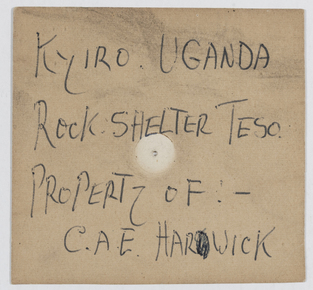 KYIRO. UGANDA
ROCK-SHELTER TESO.
PROPERTY OF:-
C.A.E. HARDWICK